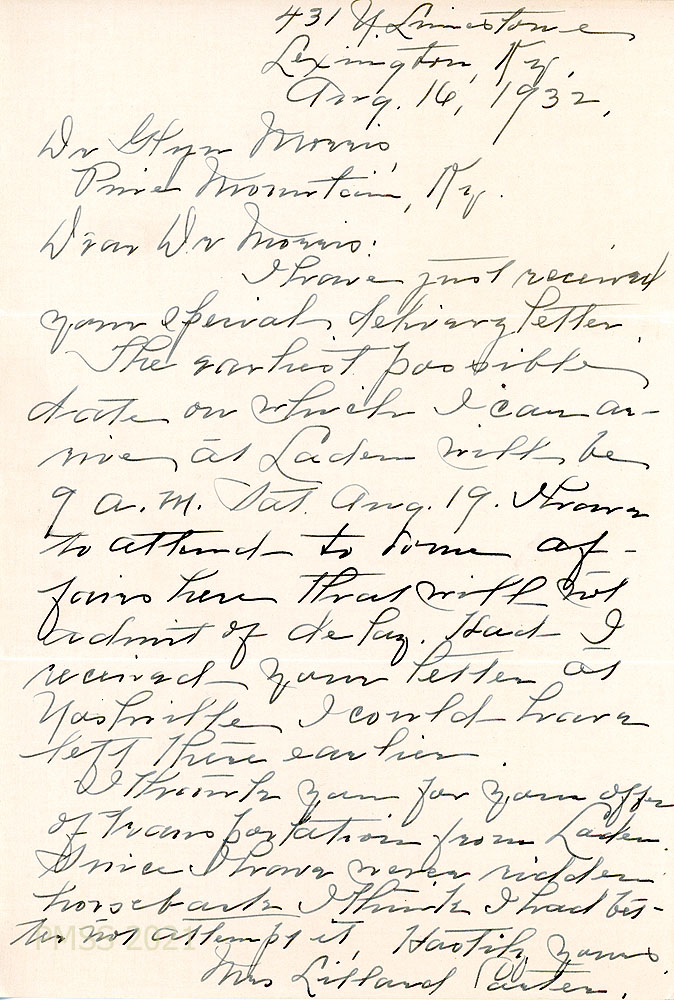 431 N. Limestone,
Lexington, Ky.,
Aug. 16, 1932.
Dr Glyn Morris,
Pine Mountain, Ky.
Dear Dr Morris:
I have just received
your special delivery letter.
The earliest possible
date on which I can ar-
rive at Laden will be
9 a.m. Sat. Aug. 19. I have
to attend to some af-
fairs here that will not
admit of delay. Had I
received your letter at
Nashville I could have
left there earlier.
I thank you for your offer
of transportation from Laden.
Since I have never ridden
horseback I think I had bet-
ter not attempt it. Hastily yours
Mrs Lillard Carter.
PMSS 2021